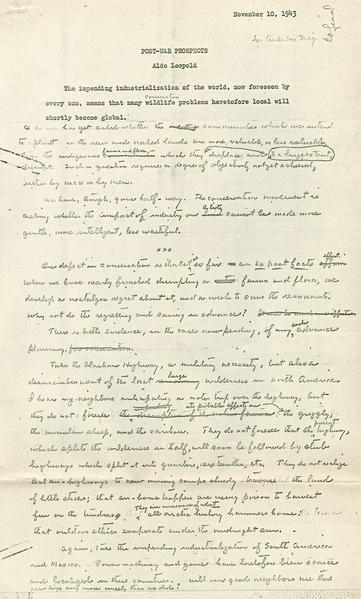 November 10, 1943
for Audubon Mag.
POST-WAR PROSPECTS
Aldo Leopold
The impending industrialization of the world, now foreseen by
conservation
every one, means that many wildlife problems heretofore local will
shortly become global.
No one has yet asked whether the communities which we intend
to plant in the new and naked lands are more valuable, or less valuable,
than the indigenous which they displace and to a large extent,
disrupt. Such a question requires a degree of objectivity not yet achieved,
either by mice or by men.
We have, though, gone half-way. The conservation movement is
asking whether the impact of industry on cannot be made more
gentle, more intelligent, less wasteful.
xxx
One defect in conservation is that it is so far an ex post facto effort.
When we have nearly finished disrupting a fauna and flora, we
develop a nostalgic regret about it, and a wish to save the remnants.
Why not do the regretting and saving in advance?
There is little evidence, in the races now pending, of any such advance
planning,
Take the Alaskan Highway, a military necessity, but also a
dismemberment of the last large wilderness in North America.
I hear my neighbors anticipating a motor trip over the highway, but
its probable effect on
they do not foresee the grizzly,
the mountain sheep, and the caribou. They do not foresee that the present highway,
which splits the wilderness in half, will soon be followed by stub
highways which split it into quarters, sixteenths, etc. They do not realize
that air-highways to new mining camps already the land
of little sticks; that air-borne trappers are using poison to harvest
fur on the tundras. They are unaware that all arctic history hammers home: the lesson
that outdoor ethics evaporate under the midnight sun.
Again, take the impending industrialization of South America
and Mexico. Power machinery and game have heretofore been scarce
and localized in these countries. Will our good neighbors use this
new toy any more wisely than we did?